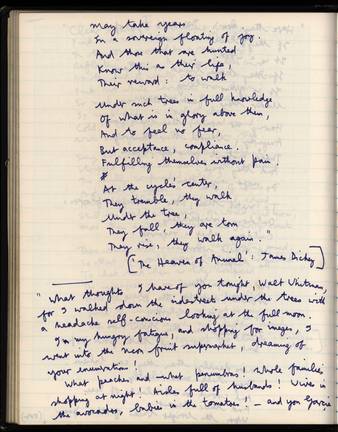 may take years
In a sovereign floating of joy.
And those that are hunted
Know this as their life,
Their reward: to walk
Under such trees in full knowledge
Of what is in glory above them,
And to feel no fear,
But acceptance, compliance.
Fulfilling themselves without pain.
At the cycle's center,
They tremble, they walk
Under the tree,
They fall, they are torn
They rise, they walk again."
['The Heaven of Animals': James Dickey]
"What thoughts I have of you tonight, Walt Whitman,
for I walked down the sidestreets under the trees with
a headache self-conscious looking at the full moon.
In my hungry fatigue, and shopping for images, I
went into the neon fruit supermarket, dreaming of
your enumerations!
What peaches and what penumbras! Whole families
shopping at night! Aisles full of husbands! Wives in
the avocados, babies in the tomatoes! — and you Garcia